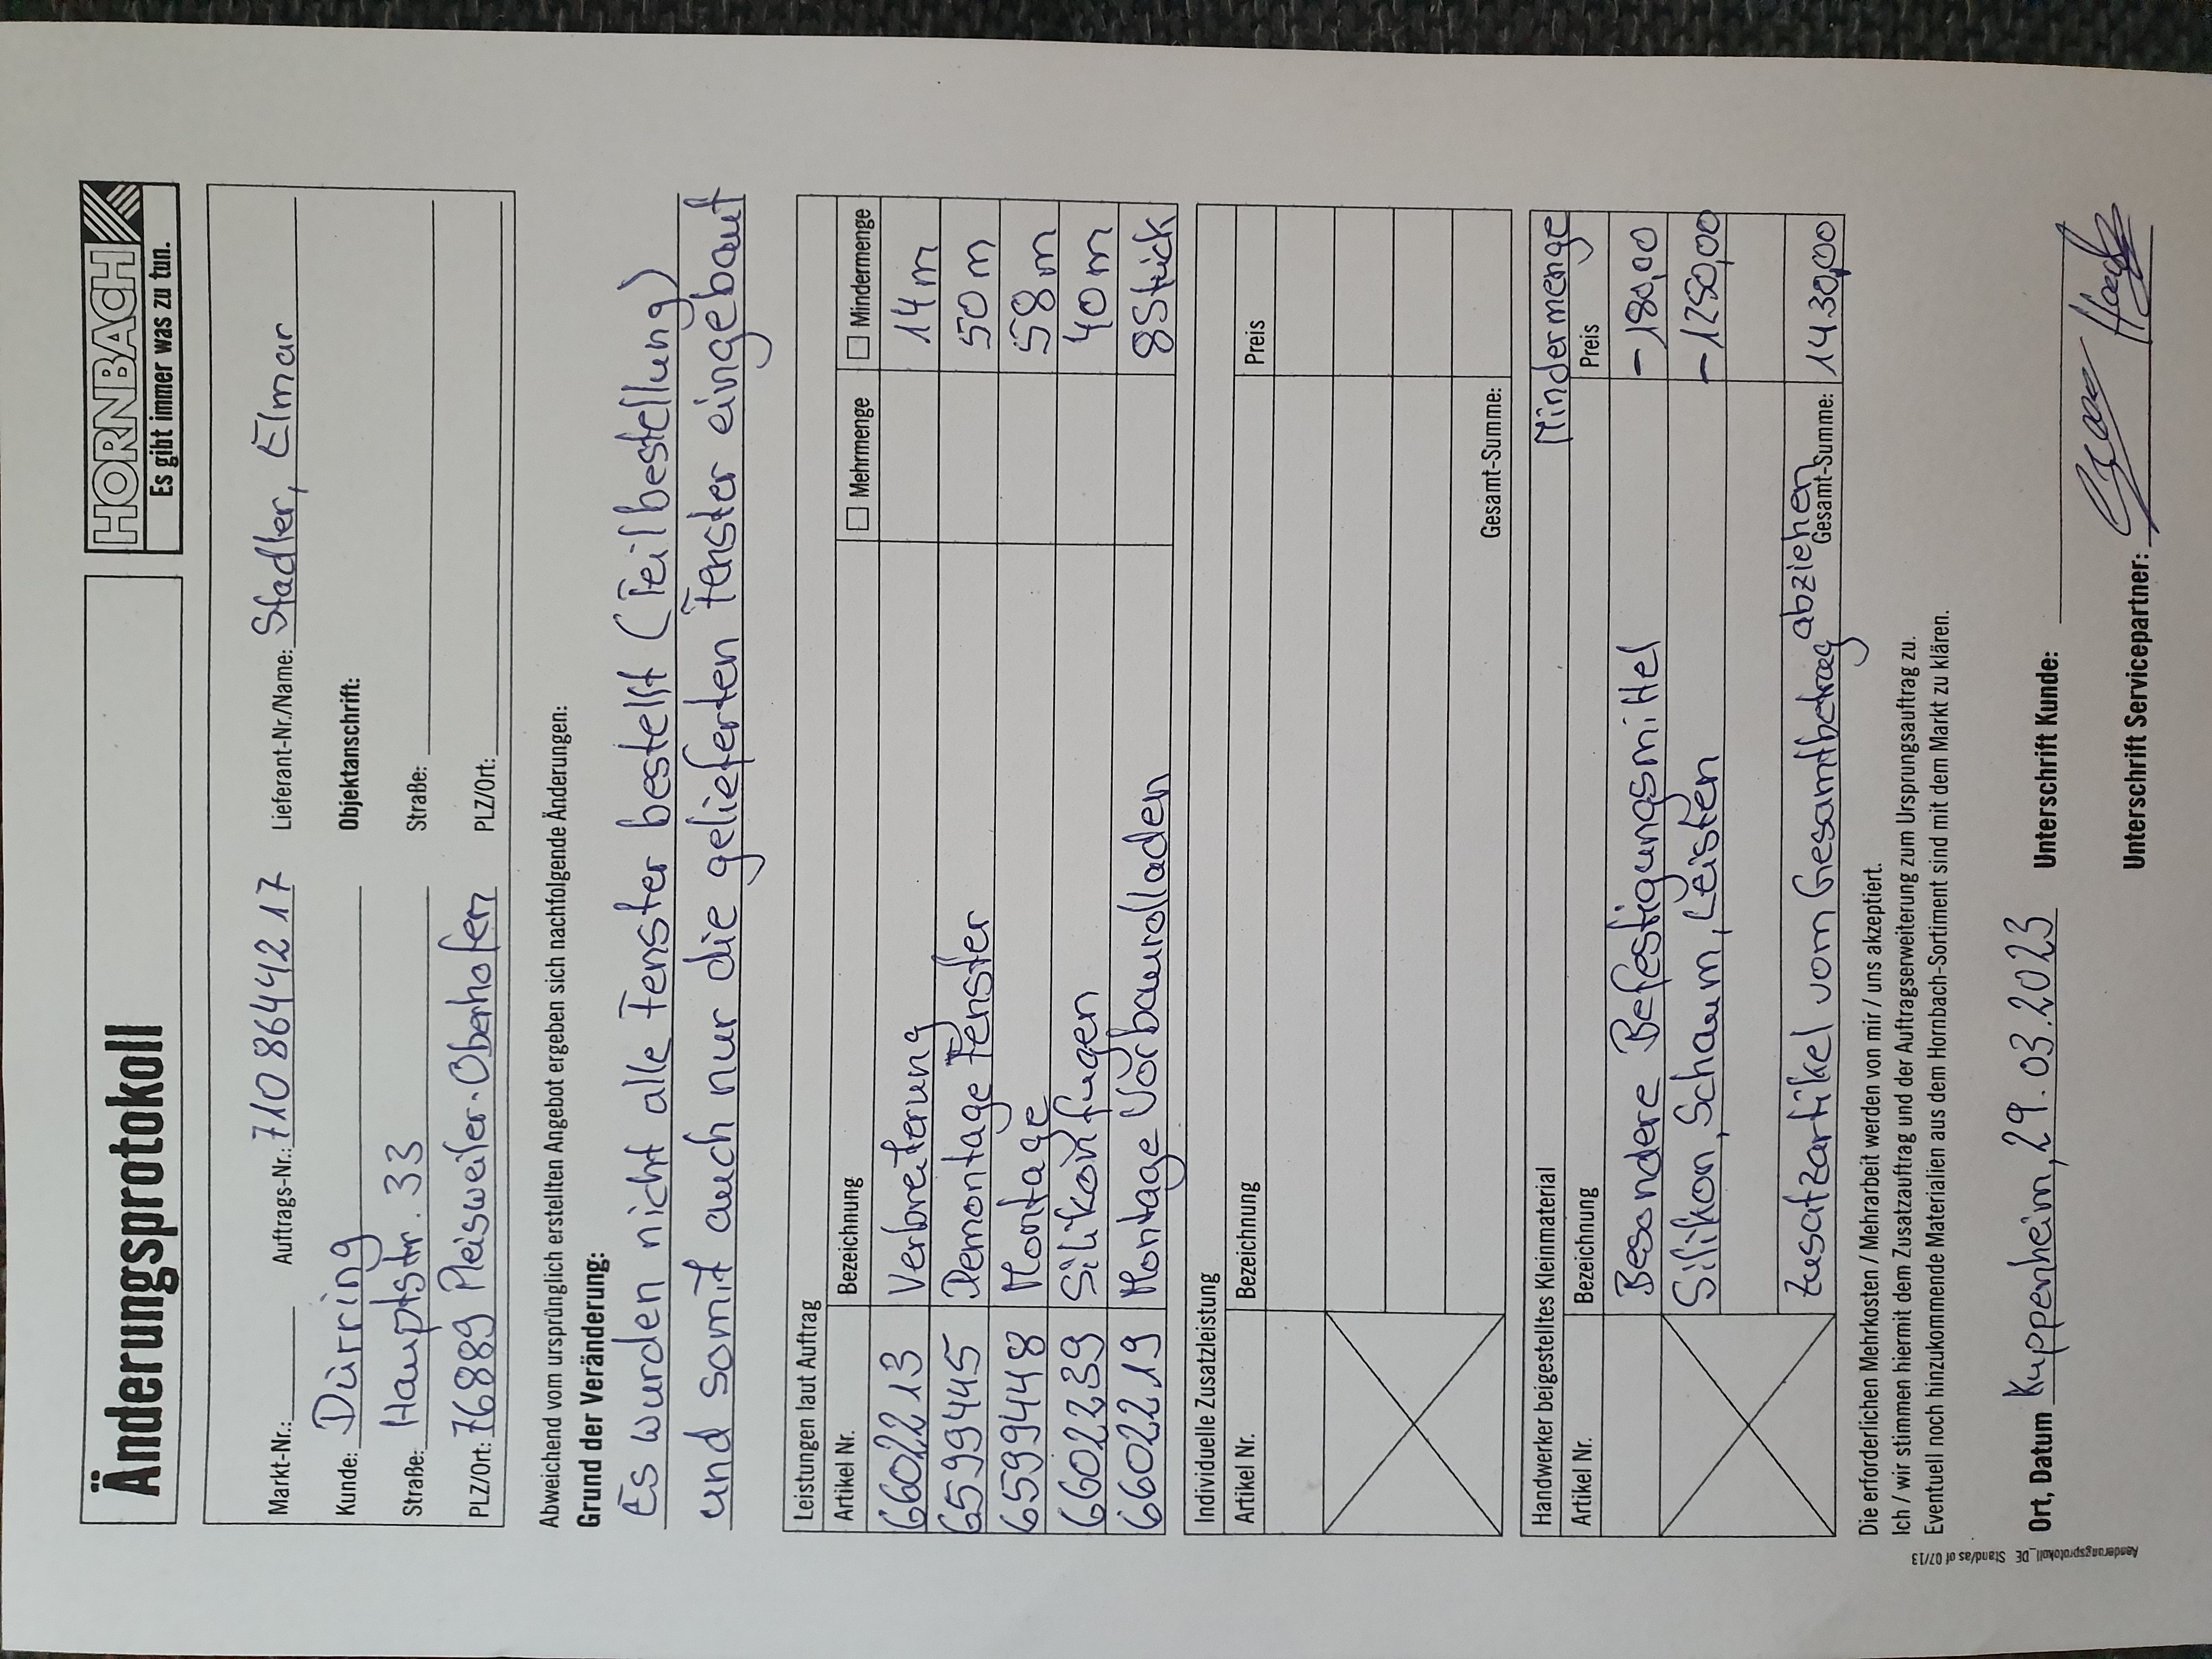 Änderungsprotokoll
HORNBACH
Es gibt immer was zu tun.
Markt-Nr.: Auftrags-Nr.: 710 8644217 Lieferant-Nr./Name: Stadler, Elmar
Kunde: Dürring Objektanschrift:
Straße: Hauptstr. 33 Straße:
PLZ/Ort: 76889 Pleisweiler-Oberhofen PLZ/Ort:
Abweichend vom ursprünglich erstellten Angebot ergeben sich nachfolgende Änderungen:
Grund der Veränderung:
Es wurden nicht alle Fenster bestellt (Teilbestellung)
und somit auch nur die gelieferten Fenster eingebaut
Leistungen laut Auftrag
Artikel Nr. Bezeichnung ☐ Mehrmenge ☐ Mindermenge
6602213 Verbreiterung 14 m
6599445 Demontage Fenster 50 m
6599448 Montage 58 m
6602239 Silikonfugen 40 m
6602219 Montage Vorbaurolladen 8 Stück
Individuelle Zusatzleistung
Artikel Nr. Bezeichnung Preis
Gesamt-Summe:
Handwerker beigestelltes Kleinmaterial Mindermenge
Artikel Nr. Bezeichnung Preis
Besondere Befestigungsmittel - 180,00
Silikon, Schaum, Leisten - 1250,00
Zusatzartikel vom Gesamtbetrag abziehen Gesamt-Summe: 1430,00
Die erforderlichen Mehrkosten / Mehrarbeit werden von mir / uns akzeptiert.
Ich / wir stimmen hiermit dem Zusatzauftrag und der Auftragserweiterung zum Ursprungsauftrag zu.
Eventuell noch hinzukommende Materialien aus dem Hornbach-Sortiment sind mit dem Markt zu klären.
Ort, Datum Kuppenheim, 29.03.2023 Unterschrift Kunde:
Unterschrift Servicepartner:
Aenderungsprotokoll_DE Stand/as of 07/13